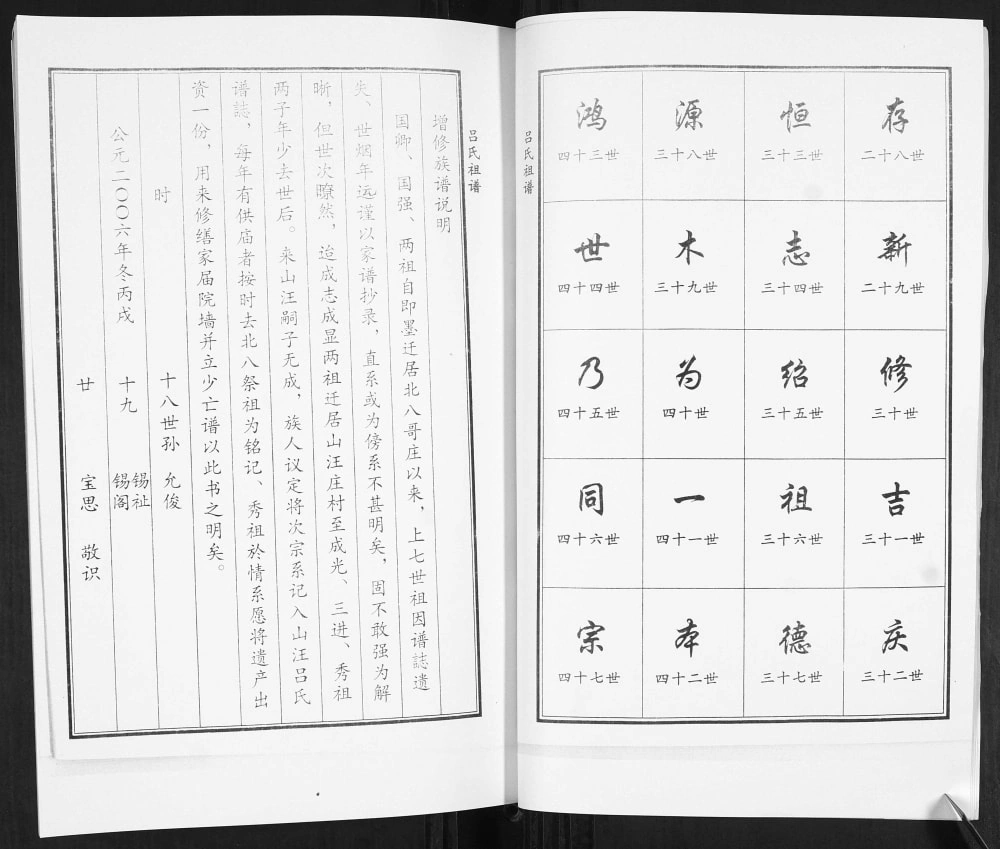 吕氏祖谱
存
二十八世
新
二十九世
修
三十世
吉
三十一世
庆
三十二世
恒
三十三世
志
三十四世
绍
三十五世
祖
三十六世
德
三十七世
源
三十八世
木
三十九世
为
四十世
一
四十一世
本
四十二世
鸿
四十三世
世
四十四世
乃
四十五世
同
四十六世
宗
四十七世
吕氏祖谱
增修族谱说明
国卿、国强、两祖自即墨迁居北八哥庄以来，上七世祖因谱誌遗
失、世烟年远谨以家谱抄录，直系或为傍系不甚明矣，固不敢强为解
晰，但世次暸然，迨成志成显两祖迁居山汪庄村至成光、三进、秀祖
两子年少去世后。来山汪嗣子无成，族人议定将次宗系记入山汪吕氏
谱誌，每年有供庙者按时去北八祭祖为铭记、秀祖於情系愿将遗产出
资一份，用来修缮家届院墙并立少亡谱以此书之明矣。
时 十八世孙 允俊
公元二〇〇六年冬丙戌 十九 锡祉
锡阁
廿 宝思 敬识